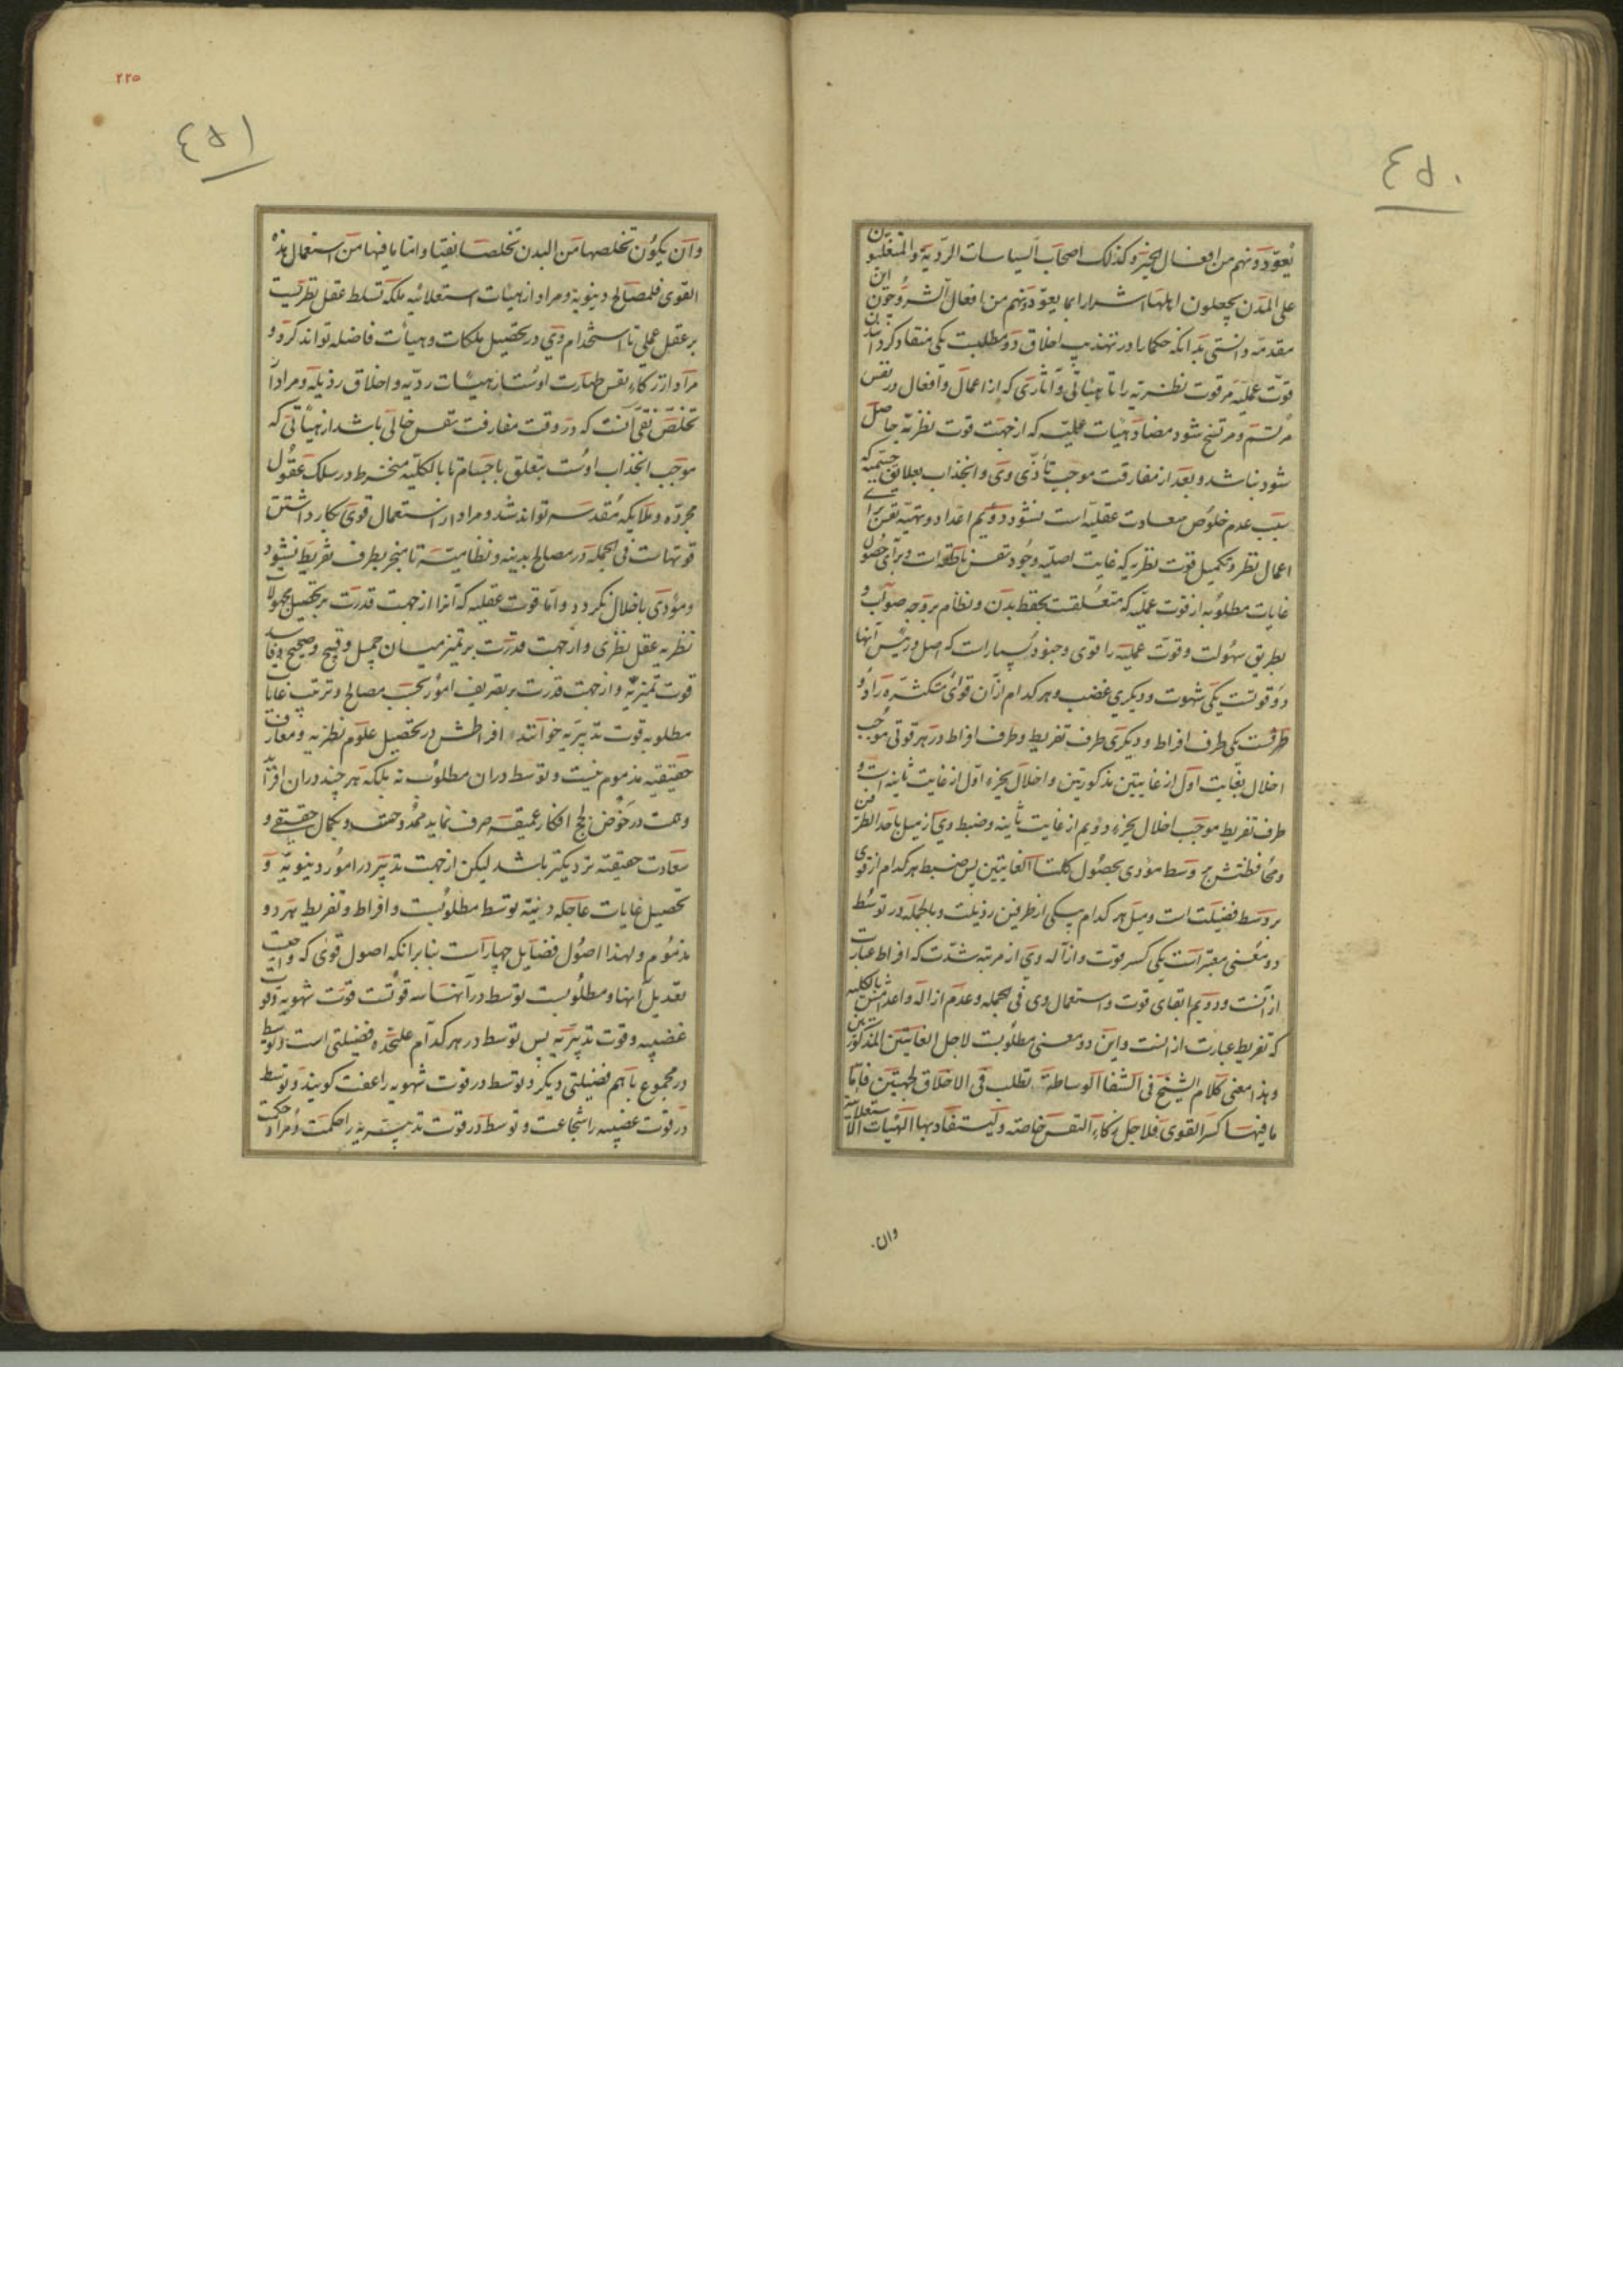 ٤٥٠
یعوّدونهم من افعال الخیر و کذلک اصحاب السیاسات الردیة و المتغلبون
علی المدن یجعلون اهلها اشرارا بما یعوّدونهم من افعال الشر و چون این
مقدمه دانستی بدانکه حکما را در تهذیب اخلاق دو مطلبست یکی منقاد کردانیدن
قوّت عملیّه مر قوت نظریه را تا هیئاتی و آثاری که از اعمال و افعال در نفس
مرتسم و مرتسخ شود مضاد هیئات عملیه که از جهت قوت نظریه حاصل
شود نباشد و بعد از مفارقت موجب تأذّی وی و انجذاب بعلایق جسمیه که
سبب عدم خلوص سعادت عقلیه است نشود دویم اعداد و تهیئه نفس برای
اعمال نظر و تکمیل قوت نظریه که غایت اصلیه وجود نفس ناطقه است و برای حصول
غایات مطلوبه از قوت عملیّه که متعلقست بحفظ بدن و نظام بر وجه صواب و
بطریق سهولت و قوت عملیه را قوی و جنود بسیار است که اصل و رئیس آنها
دو قوتست یکی شهوت و دیکری غضب و هر کدام از آن قوای متکثره را دو
طرفست یکی طرف افراط و دیکری طرف تفریط و طرف افراط در هر قوتی موجب
اخلال بغایت اول از غایتین مذکورتین و اخلال بجزء اوّل از غایت ثانیه است و
طرف تفریط موجب اخلال بجزء دویم از غایت ثانیه و ضبط وی از میل باحد الطرفین
و محافظتش بر وسط مؤدی بحصول کلتا الغایتین پس ضبط هر کدام از قوی
بر وسط فضیلت است و میل هر کدام بیکی از طرفین رذیلت و بالجمله در توسط
دو معنی معتبر است یکی کسر قوت و ازاله وی از مرتبه شدّت که افراط عبارت
از آنست و دویم ابقای قوت و استعمال وی فی الجمله و عدم ازاله و اعدامش بالکلیه
که تفریط عبارت از انست و این دو معنی مطلوبست لاجل الغایتین المذکورتین
و هذا معنی کلام الشیخ فی الشفا الوساطة تطلب فی الاخلاق لجهتین فاما
ما فیها کسر القوی فلاجل زکاء النفس خاصة و لیستفاد بها الهیئات الاستعلائیة
وان
٢٢٥
٤٥١
و ان یکون تخلصها من البدن تخلصا نقیا و اما ما فیها من استعمال هذه
القوی فلمصالح دینویة و مراد از هیئات استعلائیه ملکه تسلط عقل نظریست
بر عقل عملی تا استخدام وی در تحصیل ملکات و هیئات فاضله تواند کرد و
مراد از زکاء نفس طهارت اوست از هیئات ردیّه و اخلاق رذیله و مراد از
تخلّص نقی آنست که در وقت مفارقت نفس خالی باشد از هیئاتی که
موجب انجذاب اوست بتعلق باجسام تا بالکلیّه منخرط در سلک عقول
مجرّده و ملایکه مقدسه تواند شد و مراد از استعمال قوی بکار داشتن
قوتهاست فی الجمله در مصالح بدینه و نظامیّه تا منجر بطرف تفریط نشود
و مؤدی باخلال نکردد و اما قوت عقلیه که آنرا از جهت قدرت بر تحصیل مجهولات
نظریه عقل نظری و از جهت قدرت بر تمیز میان جمیل و قبیح و صحیح و فاسد
قوت تمیزیه و از جهت قدرت بر تصریف امور بحسب مصالح و ترتیب غایات
مطلوبه قوت تدبیریه خوانند افراطش در تحصیل علوم نظریه و معارف
حقیقیه مذموم نیست و توسط در ان مطلوب نه بلکه هر چند در ان افزاید
و همت در خوض لجج افکار عمیقه صرف نماید ممدوحتر و بکمال حقیقی و
سعادت حقیقیه نزدیکتر باشد لیکن از جهت تدبیر در امور دینویّه و
تحصیل غایات عاجله دنیّه توسط مطلوبست و افراط و تفریط هر دو
مذموم و لهذا اصول فضایل چهار است بنابر انکه اصول قوی که واجبست
تعدیل آنها و مطلوبست توسط در آنها سه قوتست قوّت شهویه و قوت
غضبیه و قوت تدبیریه پس توسط در هر کدام علیحده فضیلتی است و توسط
در مجموع با هم فضیلتی دیکر و توسط در قوت شهویه را عفت کویند و توسط
در قوت غضبیه را شجاعت و توسط در قوت تدبیریه را حکمت و مراد از حکمت